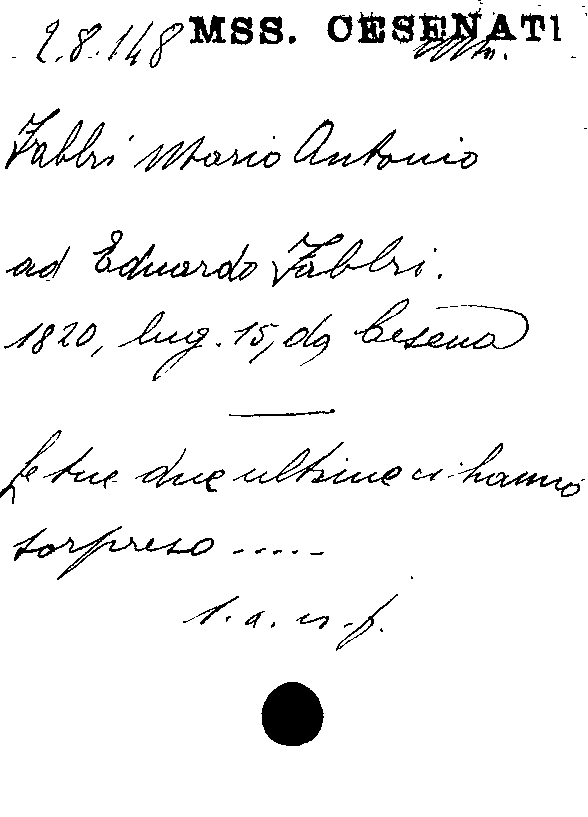 2.8.148 MSS. CESENATI
Fabbri Mario Antonio
ad Eduardo Fabbri.
1820, lug. 15, da Cesena
Le tue due ultime ci hanno
sorpreso .....
l. a. in f.